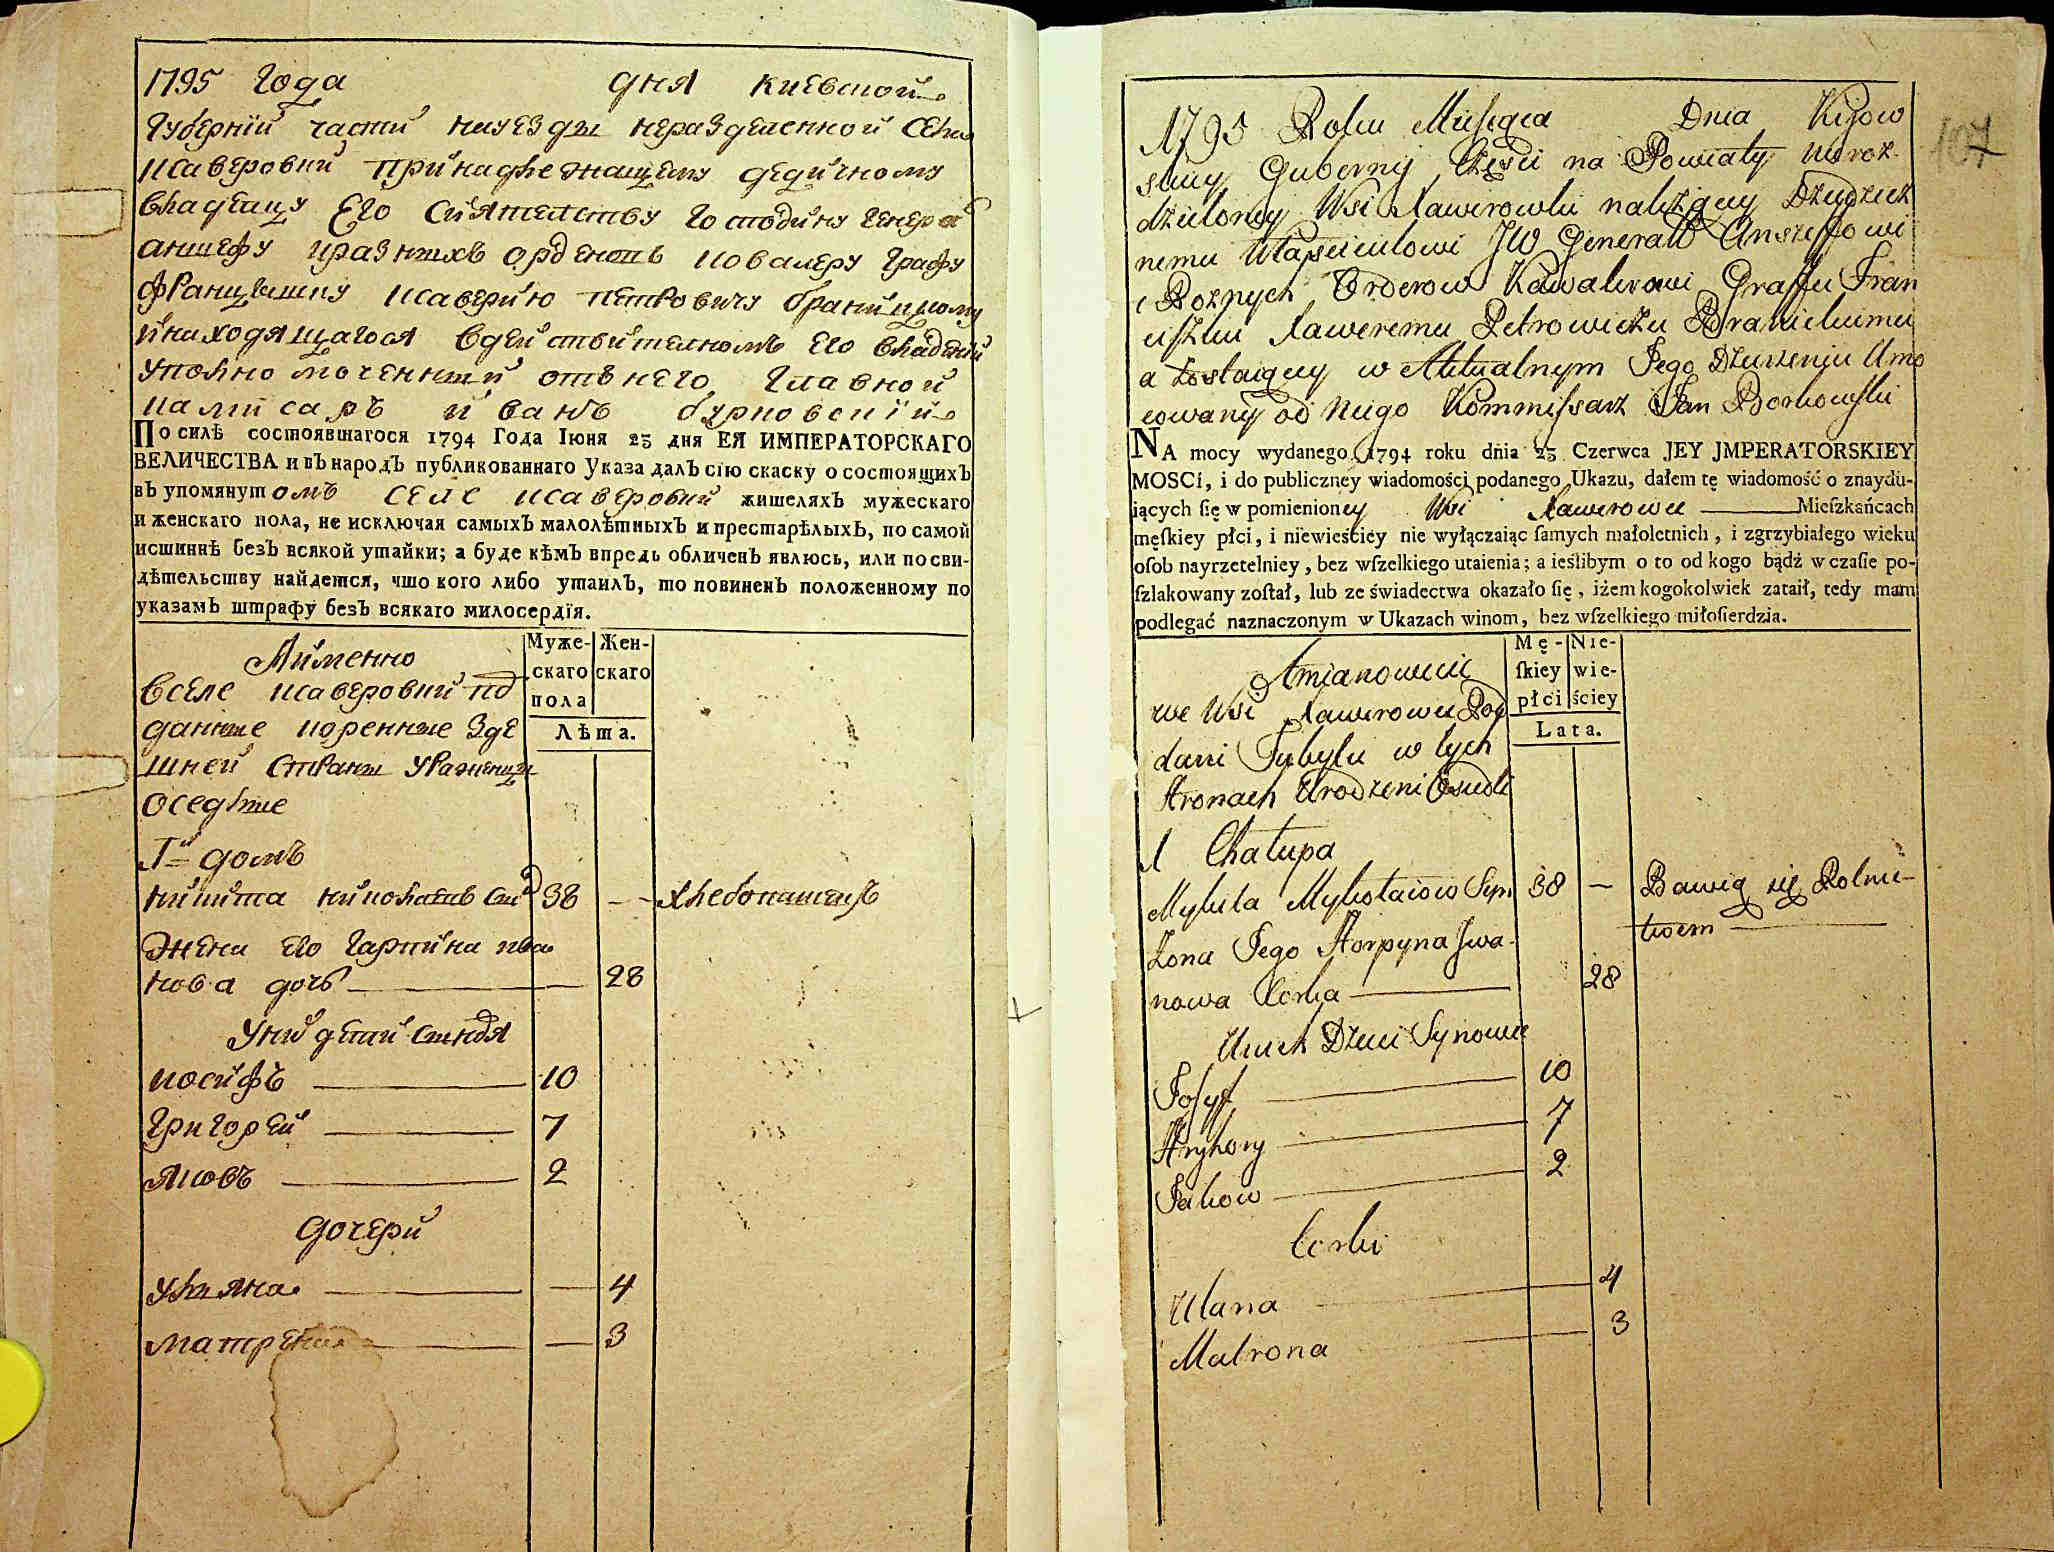 1795 Года дня Киевской
Губернїи части науезды неразделенной Села
Ксаверовки принадлежащему дедичному
владелцу Его Сиятелству Господину Генералъ
аншефу иразныхъ орденовъ ковалеру Графу
Францышку Ксаверию Петровичу браницкому
инаходящагося вдействителномъ его владении
уполномоченный отънего Главной
камисаръ иванъ бурковскїй
По силѣ состоявшагося 1794 Года Іюня 23 дня ЕЯ ИМПЕРАТОРСКАГО
ВЕЛИЧЕСТВА и въ народъ публикованнаго Указа далъ сїю скаску о состоящихъ
въ упомянутомъ селе ксаверовки жителяхъ мужескаго
и женскаго пола, не исключая самыхъ малолѣтныхъ и престарѣлыхъ, по самой
истиннѣ безъ всякой утайки; а буде кѣмъ впредь обличенъ явлюсь, или по сви-
дѣтельству найдется, что кого либо утаилъ, то повиненъ положенному по
указамъ штрафу безъ всякаго милосердїя.
Аименно
вселе ксаверовки под
данные коренные зде
шней страны уроженцы
оседлые
Муже-
скаго
пола
Жен-
скаго
Лѣта.
1й домъ
никита николаевъ сынъ 38 — хлебопашецъ
жена его Гарпина ива
нова дочь — 28
Уних дети сыновя
иосифъ — 10
Григорей — 7
Яковъ — 2
дочери
Ульяна — 4
матрена — 3
107
1795 Roku Miesąca Dnia Kijow
skiey Guberny Części na Powiaty nieroz-
dzieloney Wsi Xawerowki należący Dziedzicz
nemu Właścicielowi JW Generałł Anszeffowi
i Roznych Orderow Kawalerowi Graffu Fran
ciszku Xaweremu Petrowiczu Branickiemu
a zostaiący w Aktualnym Jego Dzierżeniu Umo
cowany od niego Kommissarz Jan Borkowski
NA mocy wydanego 1794 roku dnia 23 Czerwca JEY JMPERATORSKIEY
MOSCI, i do publiczney wiadomości podanego Ukazu, dałem tę wiadomość o znaydu-
iących ſię w pomienioney Wsi Xawerowce Mieſzkańcach
męſkiey płci, i niewieściey nie wyłączaiąc ſamych małoletnich, i zgrzybiałego wieku
oſob nayrzetelniey, bez wſzelkiego utaienia; a ieślibym o to od kogo bądź w czaſie po-
ſzlakowany zoſtał, lub ze świadectwa okazało ſię, iżem kogokolwiek zataił, tedy mam
podlegać naznaczonym w Ukazach winom, bez wſzelkiego miłoſierdzia.
Amianowicie
we Wsi Xawerowce Pod
dani Tubylcy w tych
stronach Urodzeni Osiedli
Mę-
ſkiey
płci
Nie-
wie-
ściey
Lata.
1 Chałupa
Mykita Mykołaiow Syn 38 — Bawią się Rolnic-
twem
Żona Jego Horpyna Jwa-
nowa Corka — 28
Unich Dzieci Synowie
Josyf — 10
Hryhory — 7
Jakow — 2
Corki
Ulana — 4
Matrona — 3